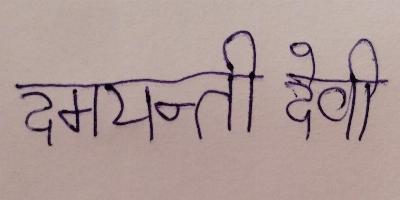 दमयन्ती देवी